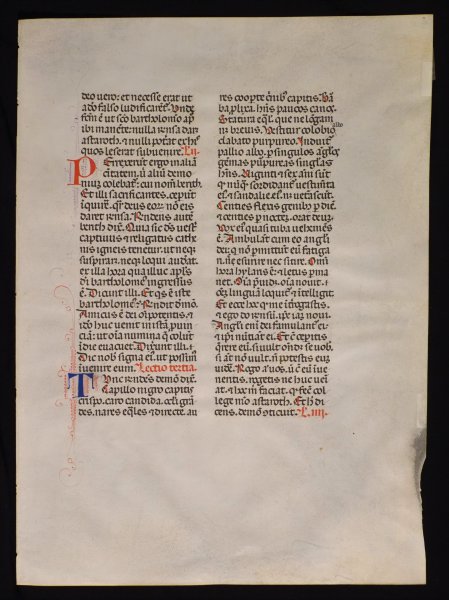 deo uero: et necesse erat ut
ado falso ludificaret. Unde
factū ē ut sc̄o bartholomeo ap̄d
ibi manēte: nulla rn̄sa daret
astaroth: et nulli poterat ex his
quos leserat subuenire. L. ii.
Perrexerūt ergo in aliā
ciuitatem. ubi aliud demo
niū colebat: cui nom̄ berith.
Et illi sacrificantes. ceperūt
īquirē. qr̄ deus eorum nō eis
daret rn̄sa. Rn̄dens autē
berith dix̄. Quia sic ds̄ uester
captiuus et religatus cathe
nis igneis tenetur. ut neque
suspirare. neque loqui audeat.
ex illa hora qua illuc apl̄s
dī bartholomeus ingressus
ē. Dicunt illi. Et quis ē iste
bartholomeus? Rn̄dit demō.
Amicus ē dei om̄ipotentis. et
ido huc uenit in istā prouin
ciā: ut om̄ia numina que colūt
indie euacuet. Dixerūt illi.
Dic nob signa eī. ut possimus
inuenire eum. Lectio tertia.
Tunc rn̄dēs demō dix̄.
Capillo nigro capitis
crispo. caro candida. oculi grā
des. nares equales et directe. au
res coopte crinibus capitis. Bar
ba prolixa. hn̄s paucos canos.
Statura equal. que nec longa
nec breuis. Uestitur colobio albo
clabato purpureo. Induitur
pallio albo. per singulos angulos
gemas purpureas singulas
hn̄s. Uiginti et sex anni sunt
que nūque sordidantur uestimēta
ei. et sandalia ei. nec uetascūt.
Centies flexis genibus per diē
et centies per noctem. orat deum.
Vox ei quasi tuba uehemēs
ē. Ambulant cum eo angeli
dei: qui nō permittūt eū fatiga
ri. nec esurire nec sitire. Om̄i
hora hylaris ē. et letus perma
net. Om̄ia preuidet. om̄ia nouit.
omem lingua loquitur et intelligit.
Et ecce hoc quod me īterrogastis.
et ego do rn̄sū. ipse iaz nouit.
Angeli enī dei famulantur ei.
et ipi nūtiat ei. Et cū ceperitis
querere eū. si uult ostendit se uob.
si aūt nō uult. nō potestis eum
uidere. Rogo aut uos. ut cū eū inue
neritis. rogetis ne huc ueni
at. et hec m̄ faciat. que fecit col
lege meo astaroth. Et hec di
cens. demō conticuit. L. iiii.